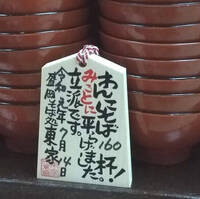 わんこそば160杯!
みごとに平げました。
立派です。
令和元年7月14日
盛岡そば処東家